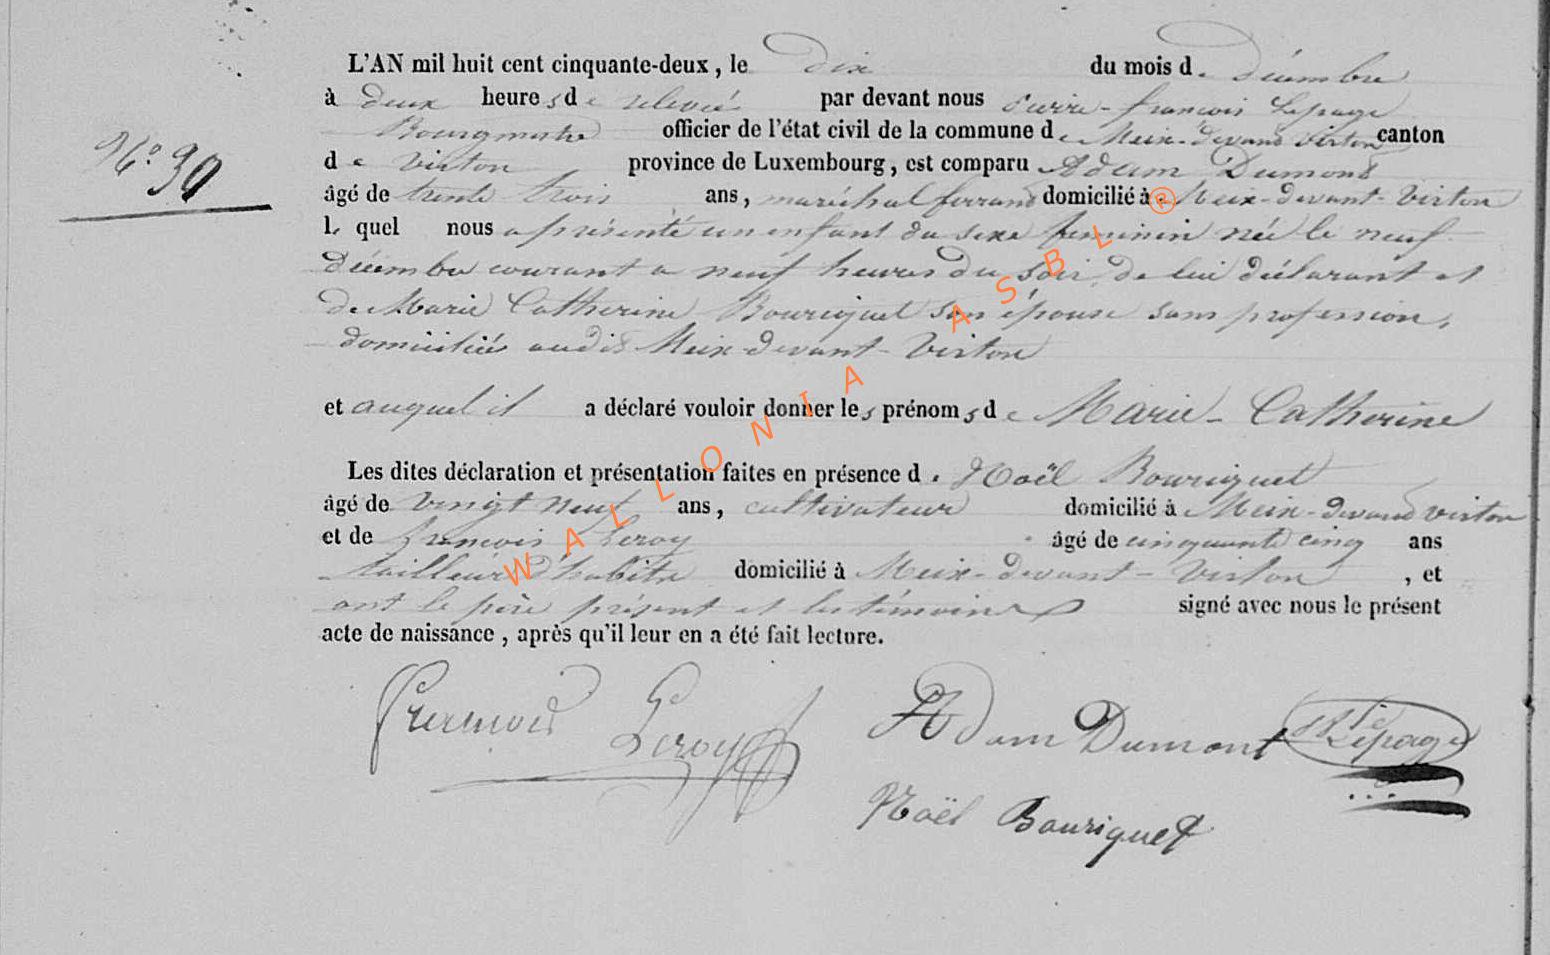 L'AN mil huit cent cinquante-deux, le dix du mois de décembre
à deux heures de relevée par devant nous Pierre-françois Lepage
Bourgmestre officier de l'état civil de la commune de Meix-devand virton canton
de virton province de Luxembourg, est comparu Adam Dumond
N° 30
âgé de trente trois ans, maréchal ferrand domicilié à Meix-devant-Virton
lequel nous a présenté un enfant du sexe feminin née le neuf
décembre courant a neuf heures du soir, de lui déclarant et
de Marie Catherine Bouriquet son épouse sans profession,
domiciliés audit Meix-devant-Virton
et auquel il a déclaré vouloir donner les prénoms de Marie-Catherine
Les dites déclaration et présentation faites en présence de Noël Bouriquet
âgé de vingt neuf ans, cultivateur domicilié à Meix-devand virton
et de françois Leroy âgé de cinquante cinq ans
tailleur d'habits domicilié à Meix-devant-Virton, et
ont le père présent et les témoins signé avec nous le présent
acte de naissance, après qu'il leur en a été fait lecture.
francois Leroy Adam Dumont Lepage
Noël Bouriquet
WALLONIA ASBL ®